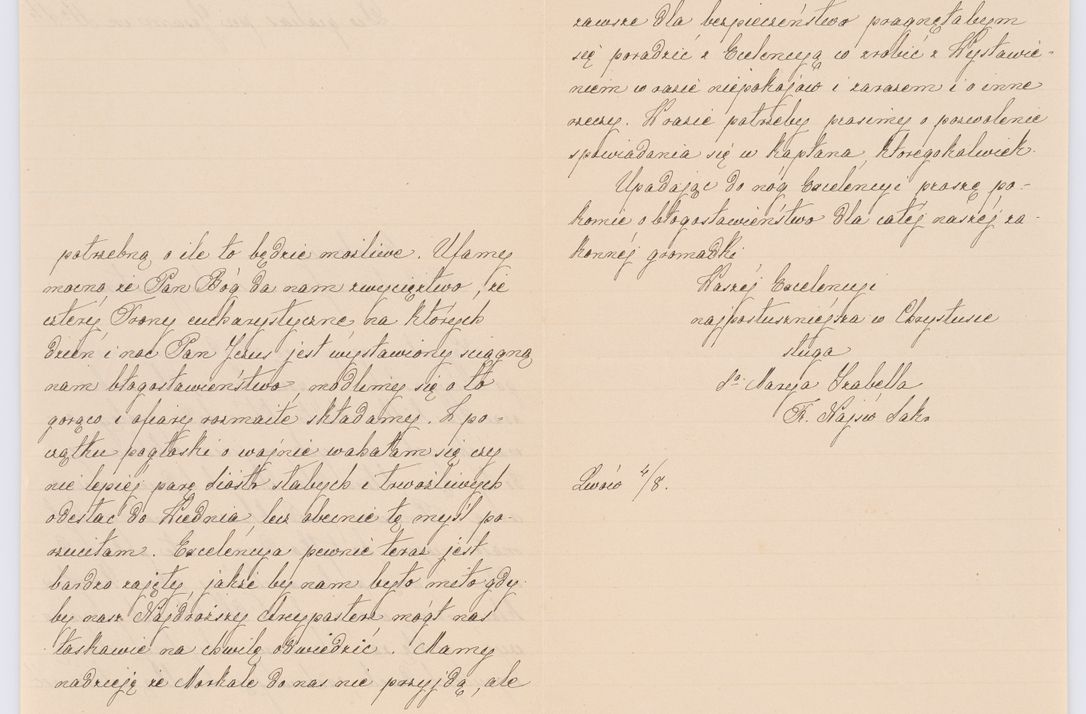 potrzebną o ile to będzie możliwe. Ufamy
mocno że Pan Bóg da nam zwycięztwo, że
cztery Trony eucharystyczne na których
dzień i noc Pan Jezus jest wystawiony ściągną
nam błogosławieństwo, modlimy się o to
gorąco i ofiary rozmaite składamy. Z po-
czątku pogłoski o wojnie wahałam się czy
nie lepiej parę sióstr słabych i trwożliwych
odesłać do Wiednia, lecz obecnie tę myśl po-
rzuciłam. Excelencya pewnie teraz jest
bardzo zajęty, jakże by nam było miło gdy-
by nasz Najdroższy Arcypasterz mógł nas
łaskawie na chwilę odwiedzić. Mamy
nadzieję że Moskale do nas nie przyjdą, ale
zawsze dla bezpieczeństwa pragnęłabym
się poradzić z Excelencyą co zrobić z Wystawie-
niem w razie niepokojów i zarazem i o inne
rzeczy. W razie potrzeby prosimy o pozwolenie
spowiadania się u kapłana któregokolwiek.
Upadając do nóg Excelencyi proszę po-
kornie o błogosławieństwo dla całej naszej za-
konnej gromadki
Waszej Excelencyi
najposłuszniejsza w Chrystusie
sługa
Sa. Marya Izabella
Fr. Najśw Sakr
Lwów 4/8.